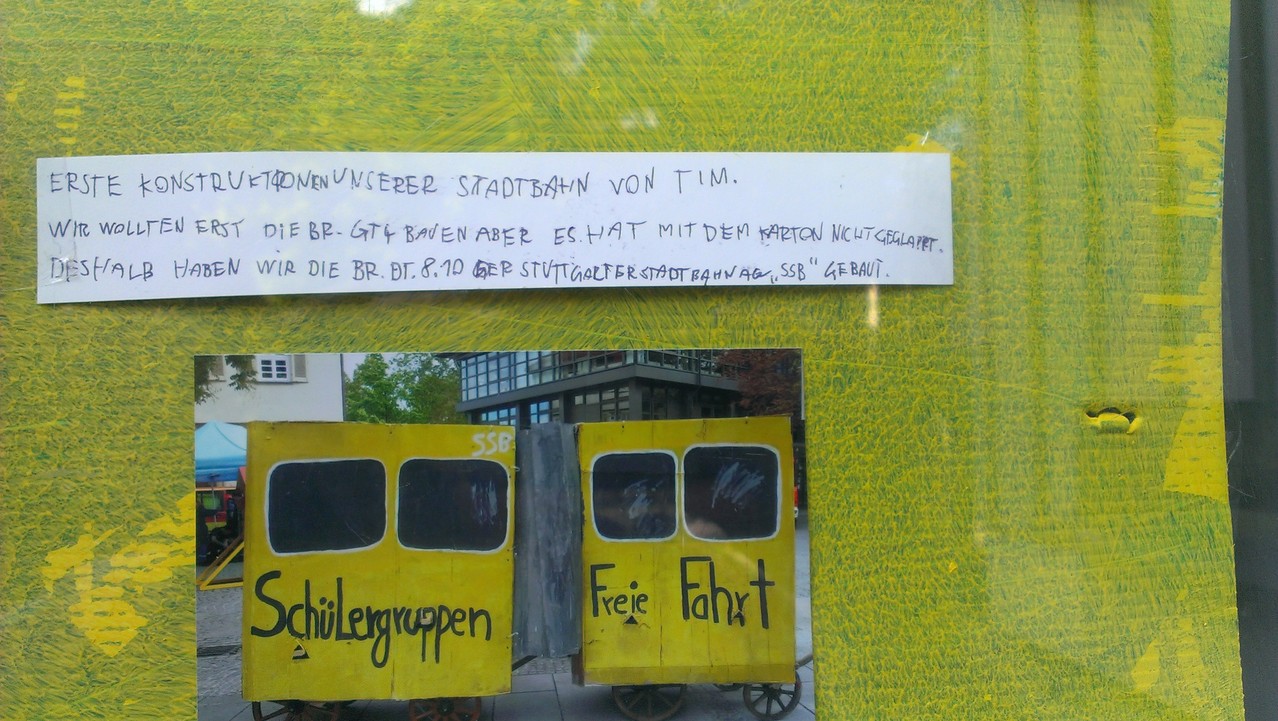 ERSTE KONSTRUKTIONEN UNSERER STADTBAHN VON TIM.
WIR WOLLTEN ERST DIE BR. GT4 BAUEN ABER ES. HAT MIT DEM KARTON NICHT GEGLAPPT.
DESHALB HABEN WIR DIE BR. DT. 8.10 DER STUTTGARTER STADTBAHN AG „SSB“ GEBAUT.
SSB
Schülergruppen Freie Fahrt